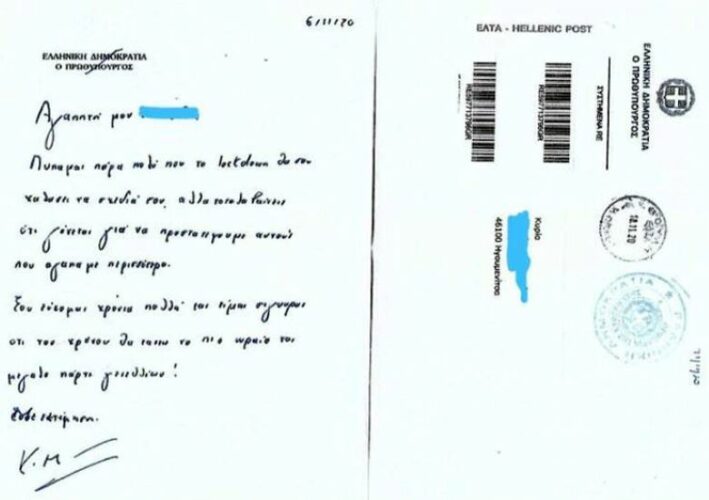 6/11/20
ΕΛΛΗΝΙΚΗ ΔΗΜΟΚΡΑΤΙΑ
Ο ΠΡΩΘΥΠΟΥΡΓΟΣ
Αγαπητή μου
Λυπάμαι πάρα πολύ που το lockdown θα σου
χαλάσει τα σχέδιά σου, αλλά καταλαβαίνεις
ότι γίνεται για να προστατέψουμε αυτούς
που αγαπάμε περισσότερο.
Σου εύχομαι χρόνια πολλά και είμαι σίγουρος
ότι του χρόνου θα κάνεις το πιο ωραίο και
μεγάλο πάρτι γενεθλίων!
Με εκτίμηση,
Κ.Μ
ΕΛΤΑ - HELLENIC POST
RE597713796GR
RE597713796GR
ΣΥΣΤΗΜΕΝΑ RE
ΕΛΛΗΝΙΚΗ ΔΗΜΟΚΡΑΤΙΑ
Ο ΠΡΩΘΥΠΟΥΡΓΟΣ
Κυρία
46100 Ηγουμενίτσα
18.11.20